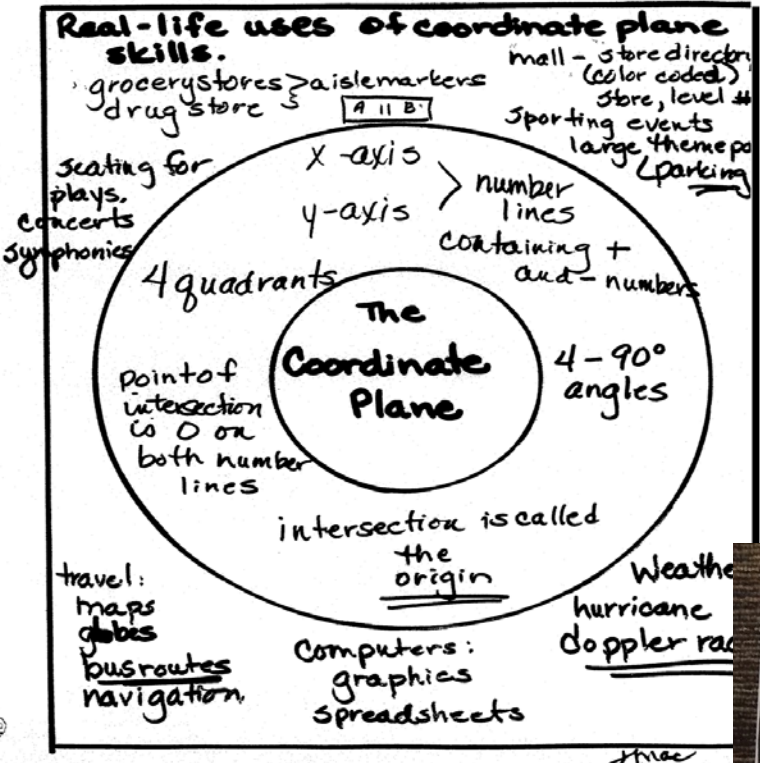 Real-life uses of coordinate plane
skills.
grocery stores > aisle markers
drug store
A 11 B
mall - store director
(color coded)
store, level #
sporting events
large theme pa
parking
seating for
plays.
concerts
symphonies
x-axis
y-axis
number
lines
containing +
and - numbers
4 quadrants
The
Coordinate
Plane
4 - 90°
angles
point of
intersection
is 0 on
both number
lines
intersection is called
the
origin
travel:
maps
globes
bus routes
navigation
Computers:
graphics
spreadsheets
Weathe
hurricane
doppler rad